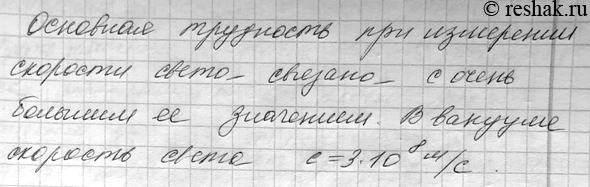 © reshak.ru
Основная трудность при измерении
скорости света связано с очень
большим ее значением. В вакууме
скорость света c = 3·10⁸ м/с.